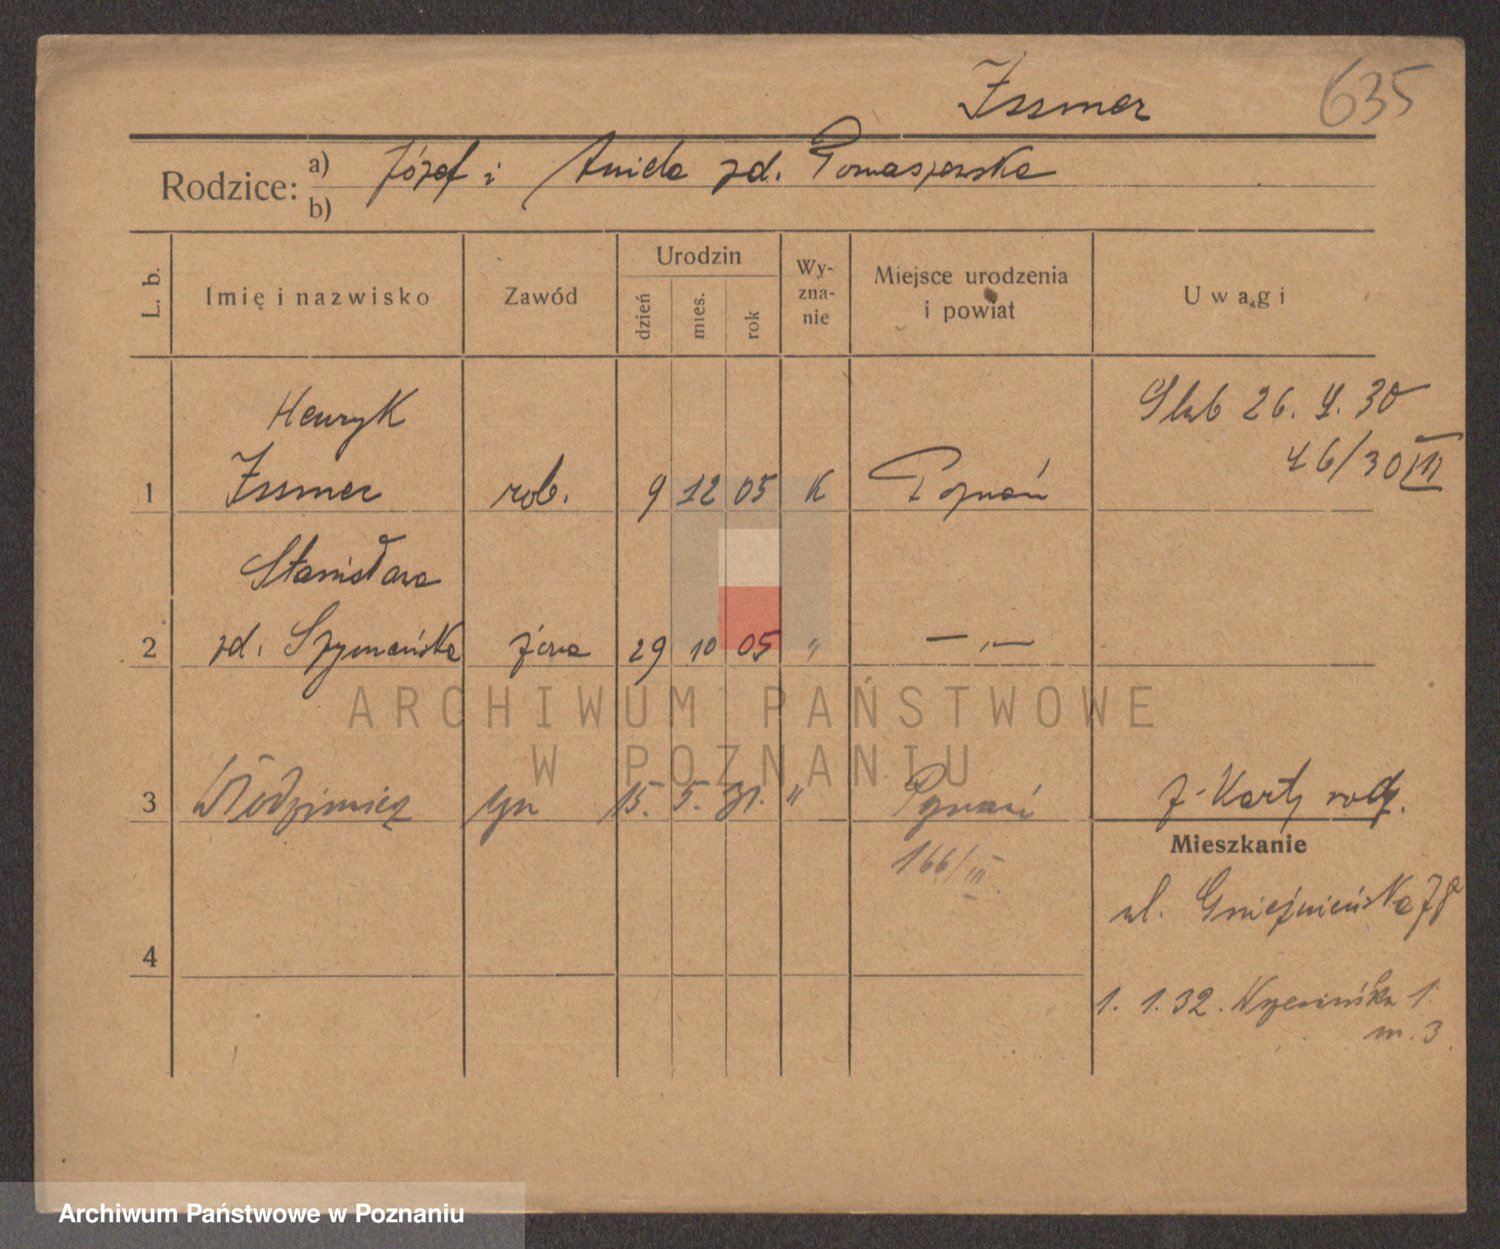 Issmer 635
Rodzice: a) Józef i Aniela zd. Tomaszewska
b)
L. b. Imię i nazwisko Zawód Urodzin dzień mies. rok Wy-zna-nie Miejsce urodzenia i powiat Uwagi
Henryk Ślub 26. 30
46/30 III
1 Issmer rob. 9 12 05 K Poznań
Stanisława
2 zd. Szymańska żona 29 10 05 " — " —
ARCHIWUM PAŃSTWOWE
W POZNANIU
3 Włodzimierz syn 15. 5. 31. " Poznań z Karty rodz.
Mieszkanie
166/III
ul. Gnieźnieńska
4
1. 1. 32. Wrzesińska 1.
m. 3
Archiwum Państwowe w Poznaniu